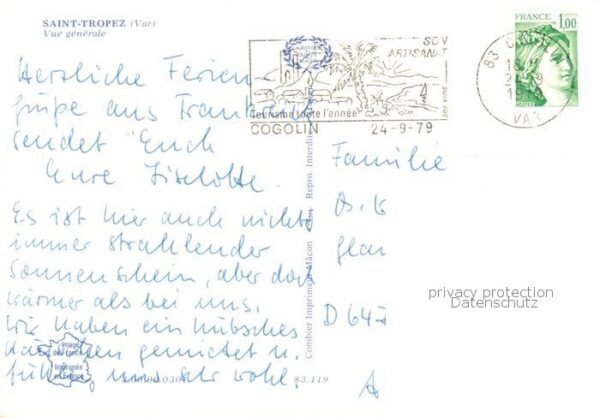 SAINT-TROPEZ (Var)
Vue générale
Herzliche Ferien-
grüße aus Frankreich
sendet Euch
Eure Liselotte.
Es ist hier auch nicht
immer strahlender
Sonnenschein, aber doch
wärmer als bei uns.
Wir haben ein hübsches
Häuschen gemietet u.
fühlen uns sehr wohl.
ARTISANAT
Tourisme toute l'année
COGOLIN 24-9-79
83
VAR
FRANCE
1,00
POSTES
Combier Imprimeur Mâcon
Repro. Interdite
Familie
D 647
privacy protection
Datenschutz
Image
de France
Imprimée
en Europe
83.119